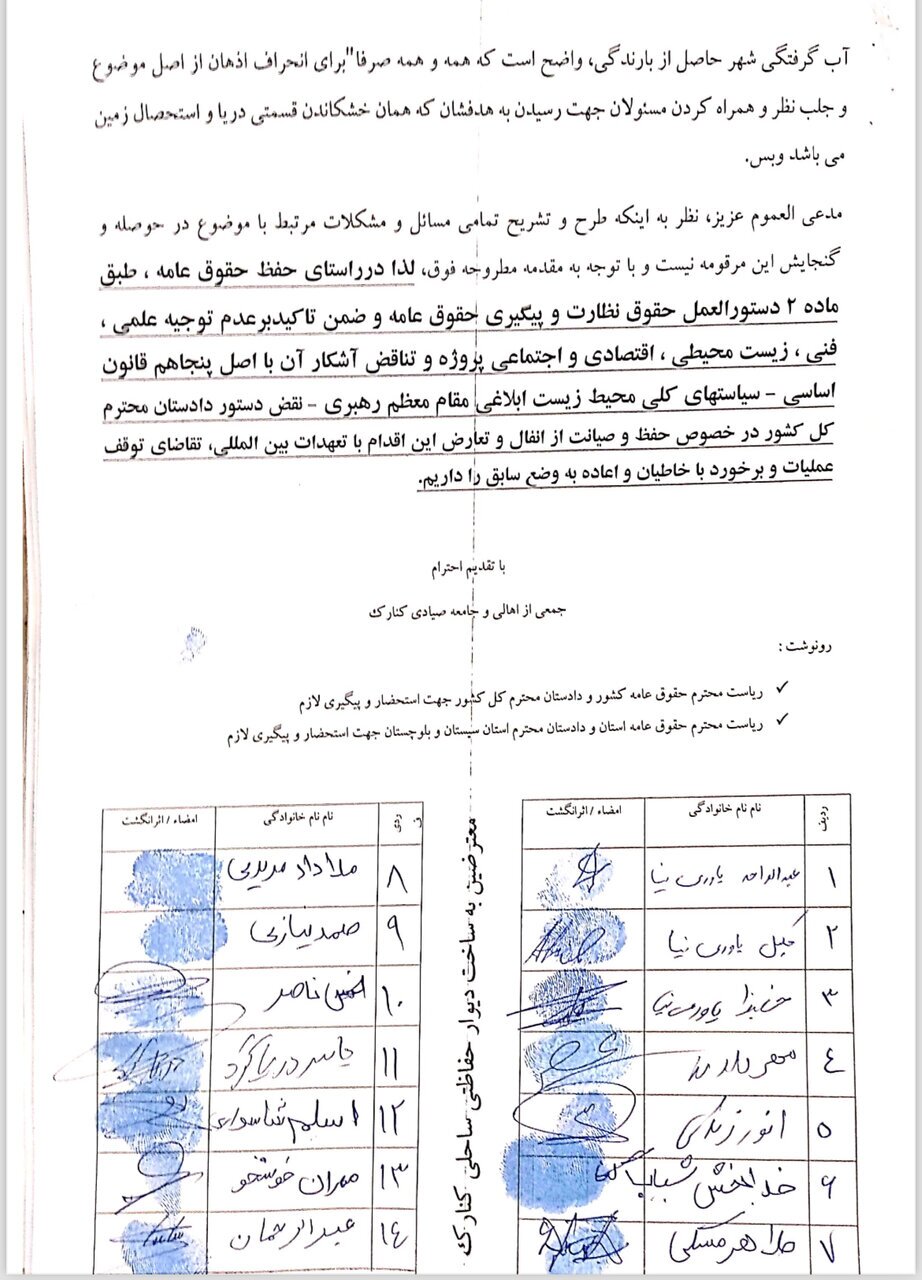 آب گرفتگی شهر حاصل از بارندگی، واضح است که همه و همه صرفا"برای انحراف اذهان از اصل موضوع
و جلب نظر و همراه کردن مسئولان جهت رسیدن به هدفشان که همان خشکاندن قسمتی دریا و استحصال زمین
می باشد وبس.
مدعی العموم عزیز، نظر به اینکه طرح و تشریح تمامی مسائل و مشکلات مرتبط با موضوع در حوصله و
گنجایش این مرقومه نیست و با توجه به مقدمه مطروحه فوق، لذا درراستای حفظ حقوق عامه ، طبق
ماده ۲ دستورالعمل حقوق نظارت و پیگیری حقوق عامه و ضمن تاکیدبرعدم توجیه علمی ،
فنی ، زیست محیطی ، اقتصادی و اجتماعی پروژه و تناقض آشکار آن با اصل پنجاهم قانون
اساسی – سیاستهای کلی محیط زیست ابلاغی مقام معظم رهبری – نقض دستور دادستان محترم
کل کشور در خصوص حفظ و صیانت از انفال و تعارض این اقدام با تعهدات بین المللی، تقاضای توقف
عملیات و برخورد با خاطیان و اعاده به وضع سابق را داریم.
با تقدیم احترام
جمعی از اهالی و جامعه صیادی کنارک
رونوشت :
✓ ریاست محترم حقوق عامه کشور و دادستان محترم کل کشور جهت استحضار و پیگیری لازم
✓ ریاست محترم حقوق عامه استان و دادستان محترم استان سیستان و بلوچستان جهت استحضار و پیگیری لازم
ردیف نام نام خانوادگی امضاء / اثرانگشت
۱ عبدالواحد یاوری نیا
۲ یاوری نیا
۳ یاوری نیا
۴
۵ انور
۶ خدابخش شباب
۷
معترضین به ساخت دیوار حفاظتی ساحلی کنارک
ردی ف نام نام خانوادگی امضاء / اثرانگشت
۸ ملاداد
۹ صمد نیازی
۱۰ ناصر
۱۱ یاسر
۱۲ اسلم
۱۳ مهران خوشخو
۱۴ عبدالرحمان